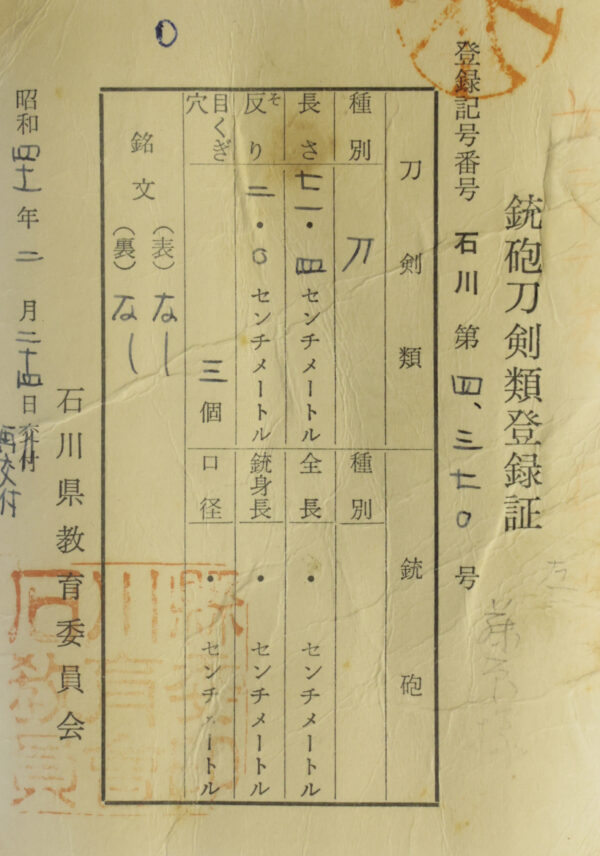 銃砲刀剣類登録証
登録記号番号 石川 第 四、三七〇 号
刀剣類
種別 刀
長さ 七一・四センチメートル
反り そ 二・〇センチメートル
目くぎ穴 三個
銘文 (表) なし
(裏) なし
銃砲
種別
全長 ・ センチメートル
銃身長 ・ センチメートル
口径 ・ センチメートル
石川県教育委員会
昭和 四十一 年 二 月 二十四 日 交付
再交付